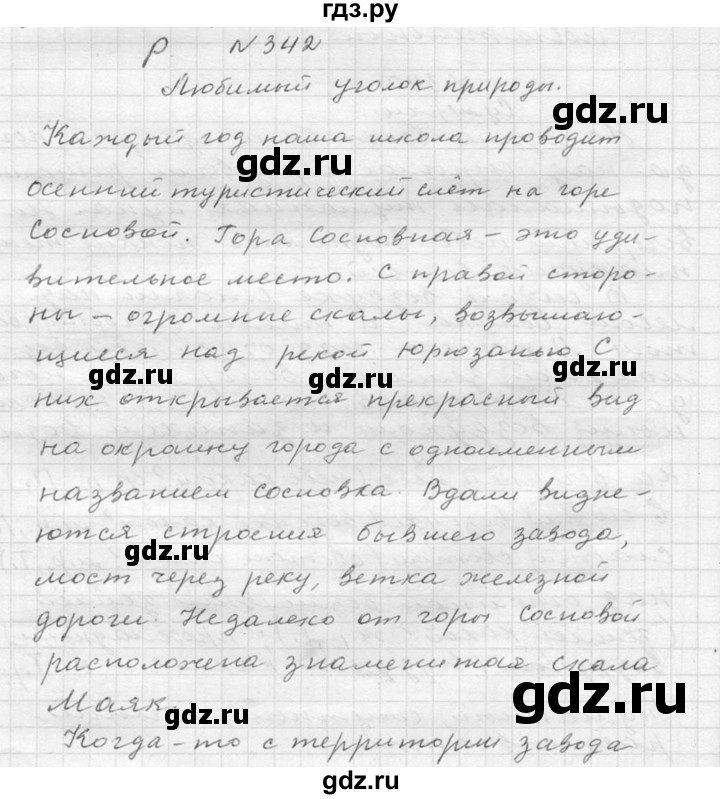 гдз.ру
Р N 342
Любимый уголок природы.
gdz.ru
Каждый год наша школа проводит
gdz.ru
осенний туристический слёт на горе
gdz.ru
Сосновой. Гора Сосновная – это уди-
gdz.ru
вительное место. С правой сторо-
ны – огромные скалы, возвышаю-
gdz.ru
щиеся над рекой Юрюзанью. С
gdz.ru gdz.ru
них открывается прекрасный вид
на окраину города с одноименным
gdz.ru
названием Сосновка. Вдали видне-
ются строения бывшего завода,
gdz.ru
мост через реку, ветка железной
дороги. Недалеко от горы Сосновой
расположена знаменитая скала
Маяк.
gdz.ru gdz.ru
Когда-то с территории завода
gdz.ru